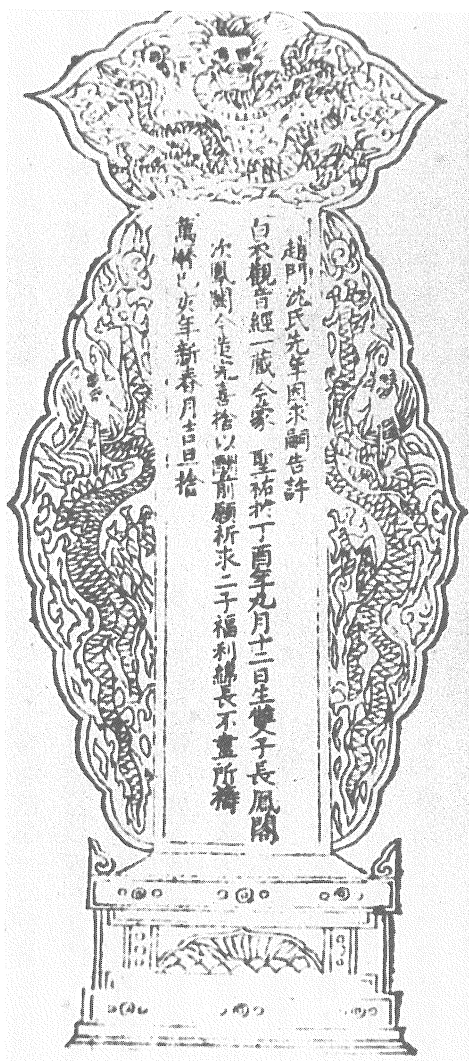 趙門沈氏先年因求嗣告許
白衣觀音經一藏今蒙 聖祐於丁酉年九月十二日生雙子長鳳閣
次鳳今造完喜捨以酬前願祈求二子福利綿長不盡所禱
萬曆己亥年新春月吉旦捨